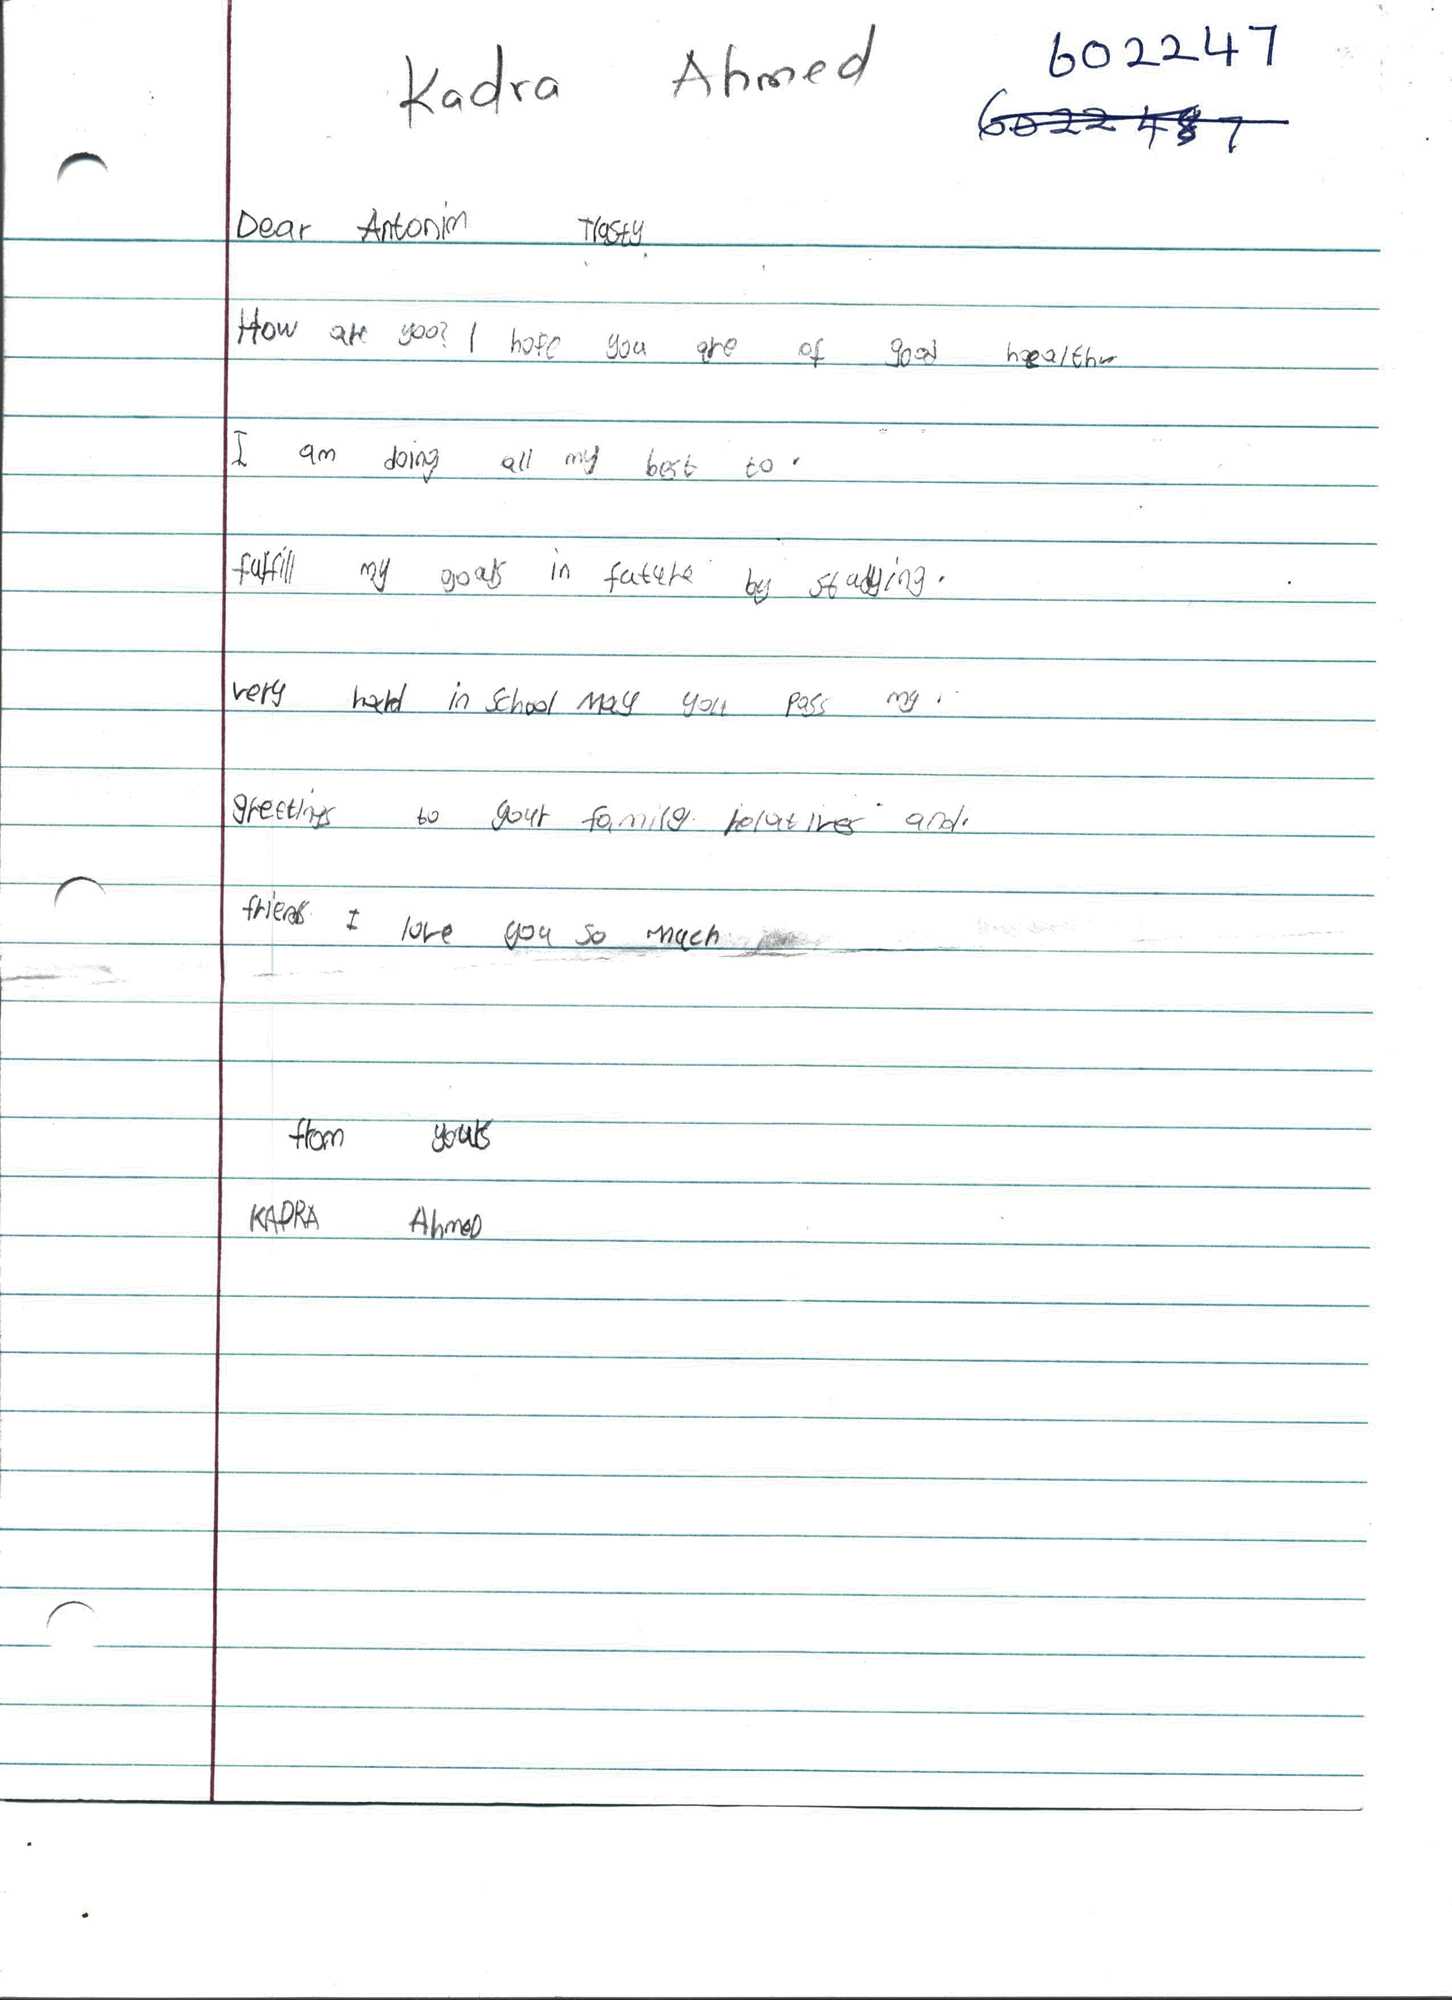 Kadra Ahmed 602247
6022487
Dear Antonim Tlasty
How are you? I hope you are of good health
I am doing all my best to.
fulfill my goals in future by studying.
very hard in school May you pass my.
greetings to your family. relatives and.
friends. I love you so much
from yours
KADRA Ahmed